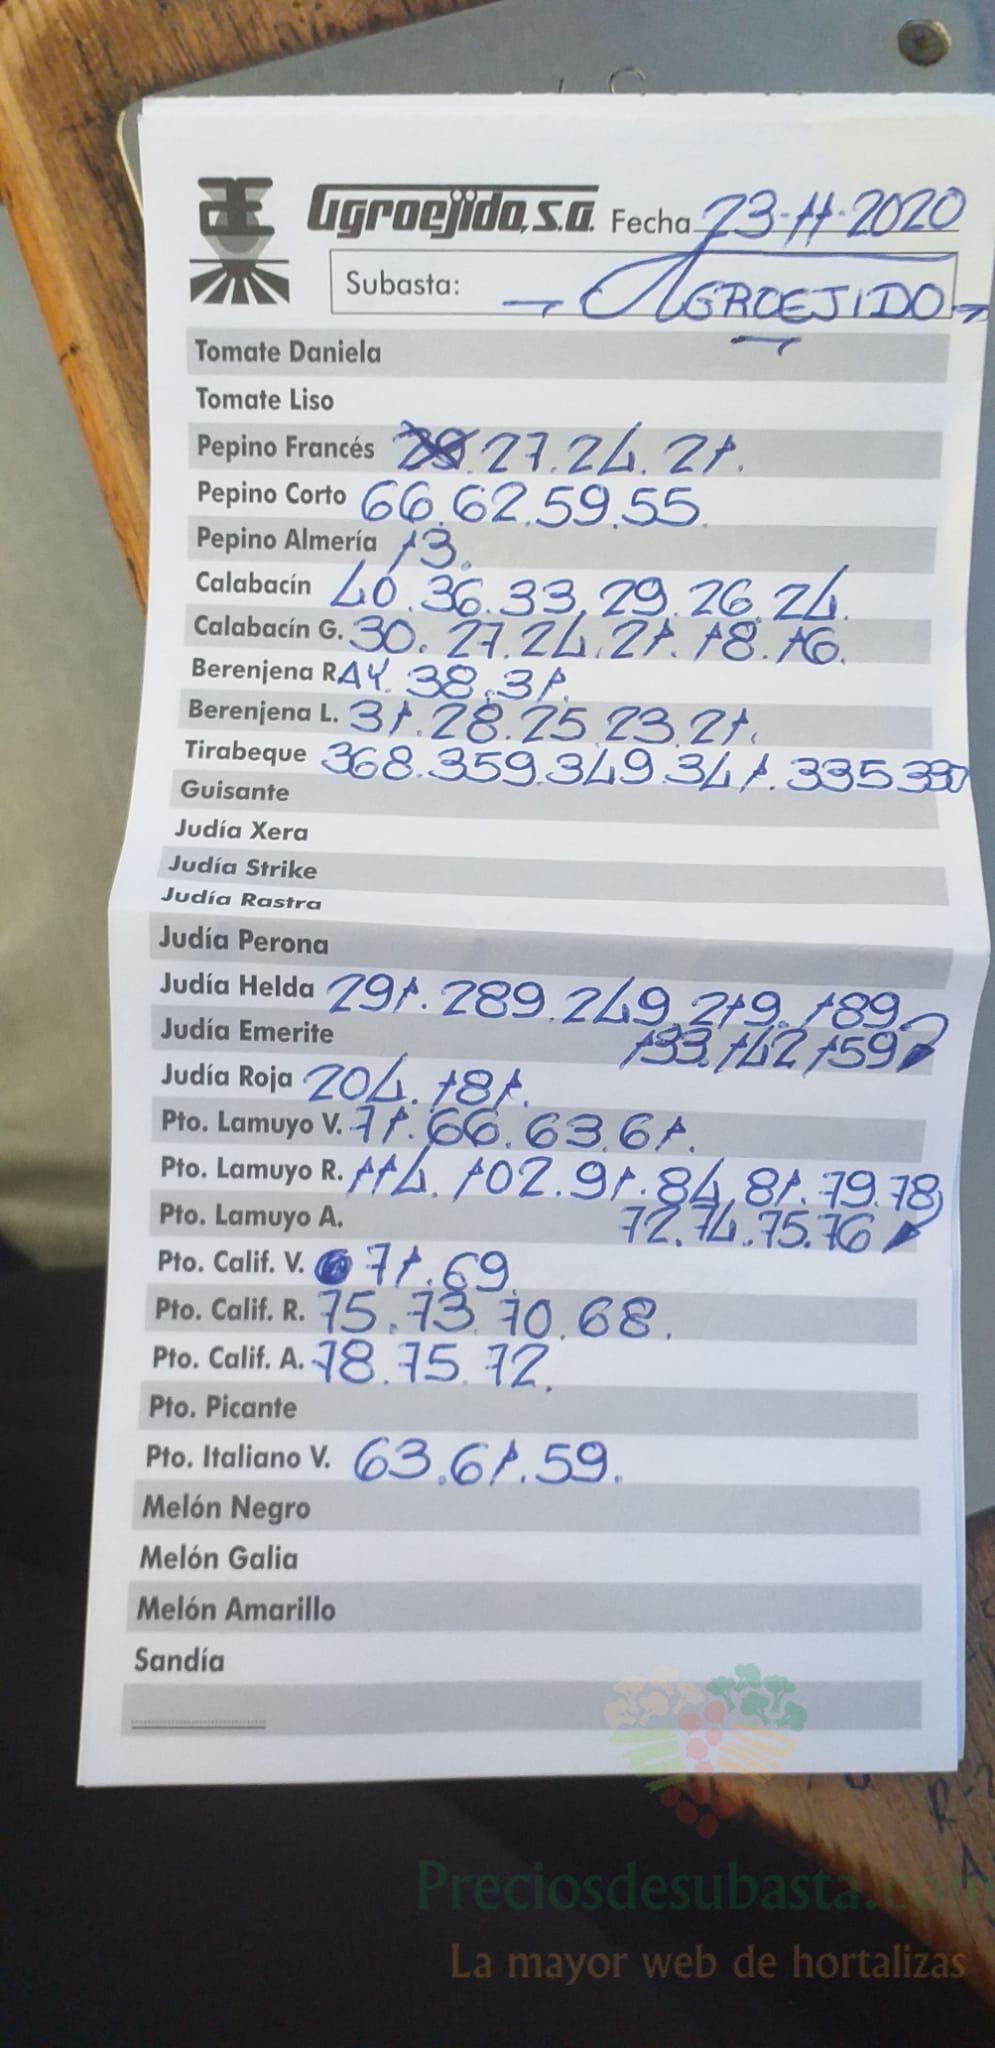 Agroejido, S.A. Fecha 23-11-2020
Subasta: - AGROEJIDO -
Tomate Daniela
Tomate Liso
Pepino Francés 27.24.21.
Pepino Corto 66.62.59.55.
Pepino Almería 13.
Calabacín 40.36.33.29.26.24.
Calabacín G. 30.27.24.21.18.16.
Berenjena RAY. 38.31.
Berenjena L. 31.28.25.23.21.
Tirabeque 368.359.349.341.335.330
Guisante
Judía Xera
Judía Strike
Judía Rastra
Judía Perona
Judía Helda 291.289.249.219.189
Judía Emerite 133.142.159
Judía Roja 204.181.
Pto. Lamuyo V. 71.66.63.61.
Pto. Lamuyo R. 114.102.91.84.81.79.78
Pto. Lamuyo A. 72.74.75.76
Pto. Calif. V. 71.69.
Pto. Calif. R. 75.73.70.68.
Pto. Calif. A. 78.75.72.
Pto. Picante
Pto. Italiano V. 63.61.59.
Melón Negro
Melón Galia
Melón Amarillo
Sandía
Preciosdesubasta.com
La mayor web de hortalizas